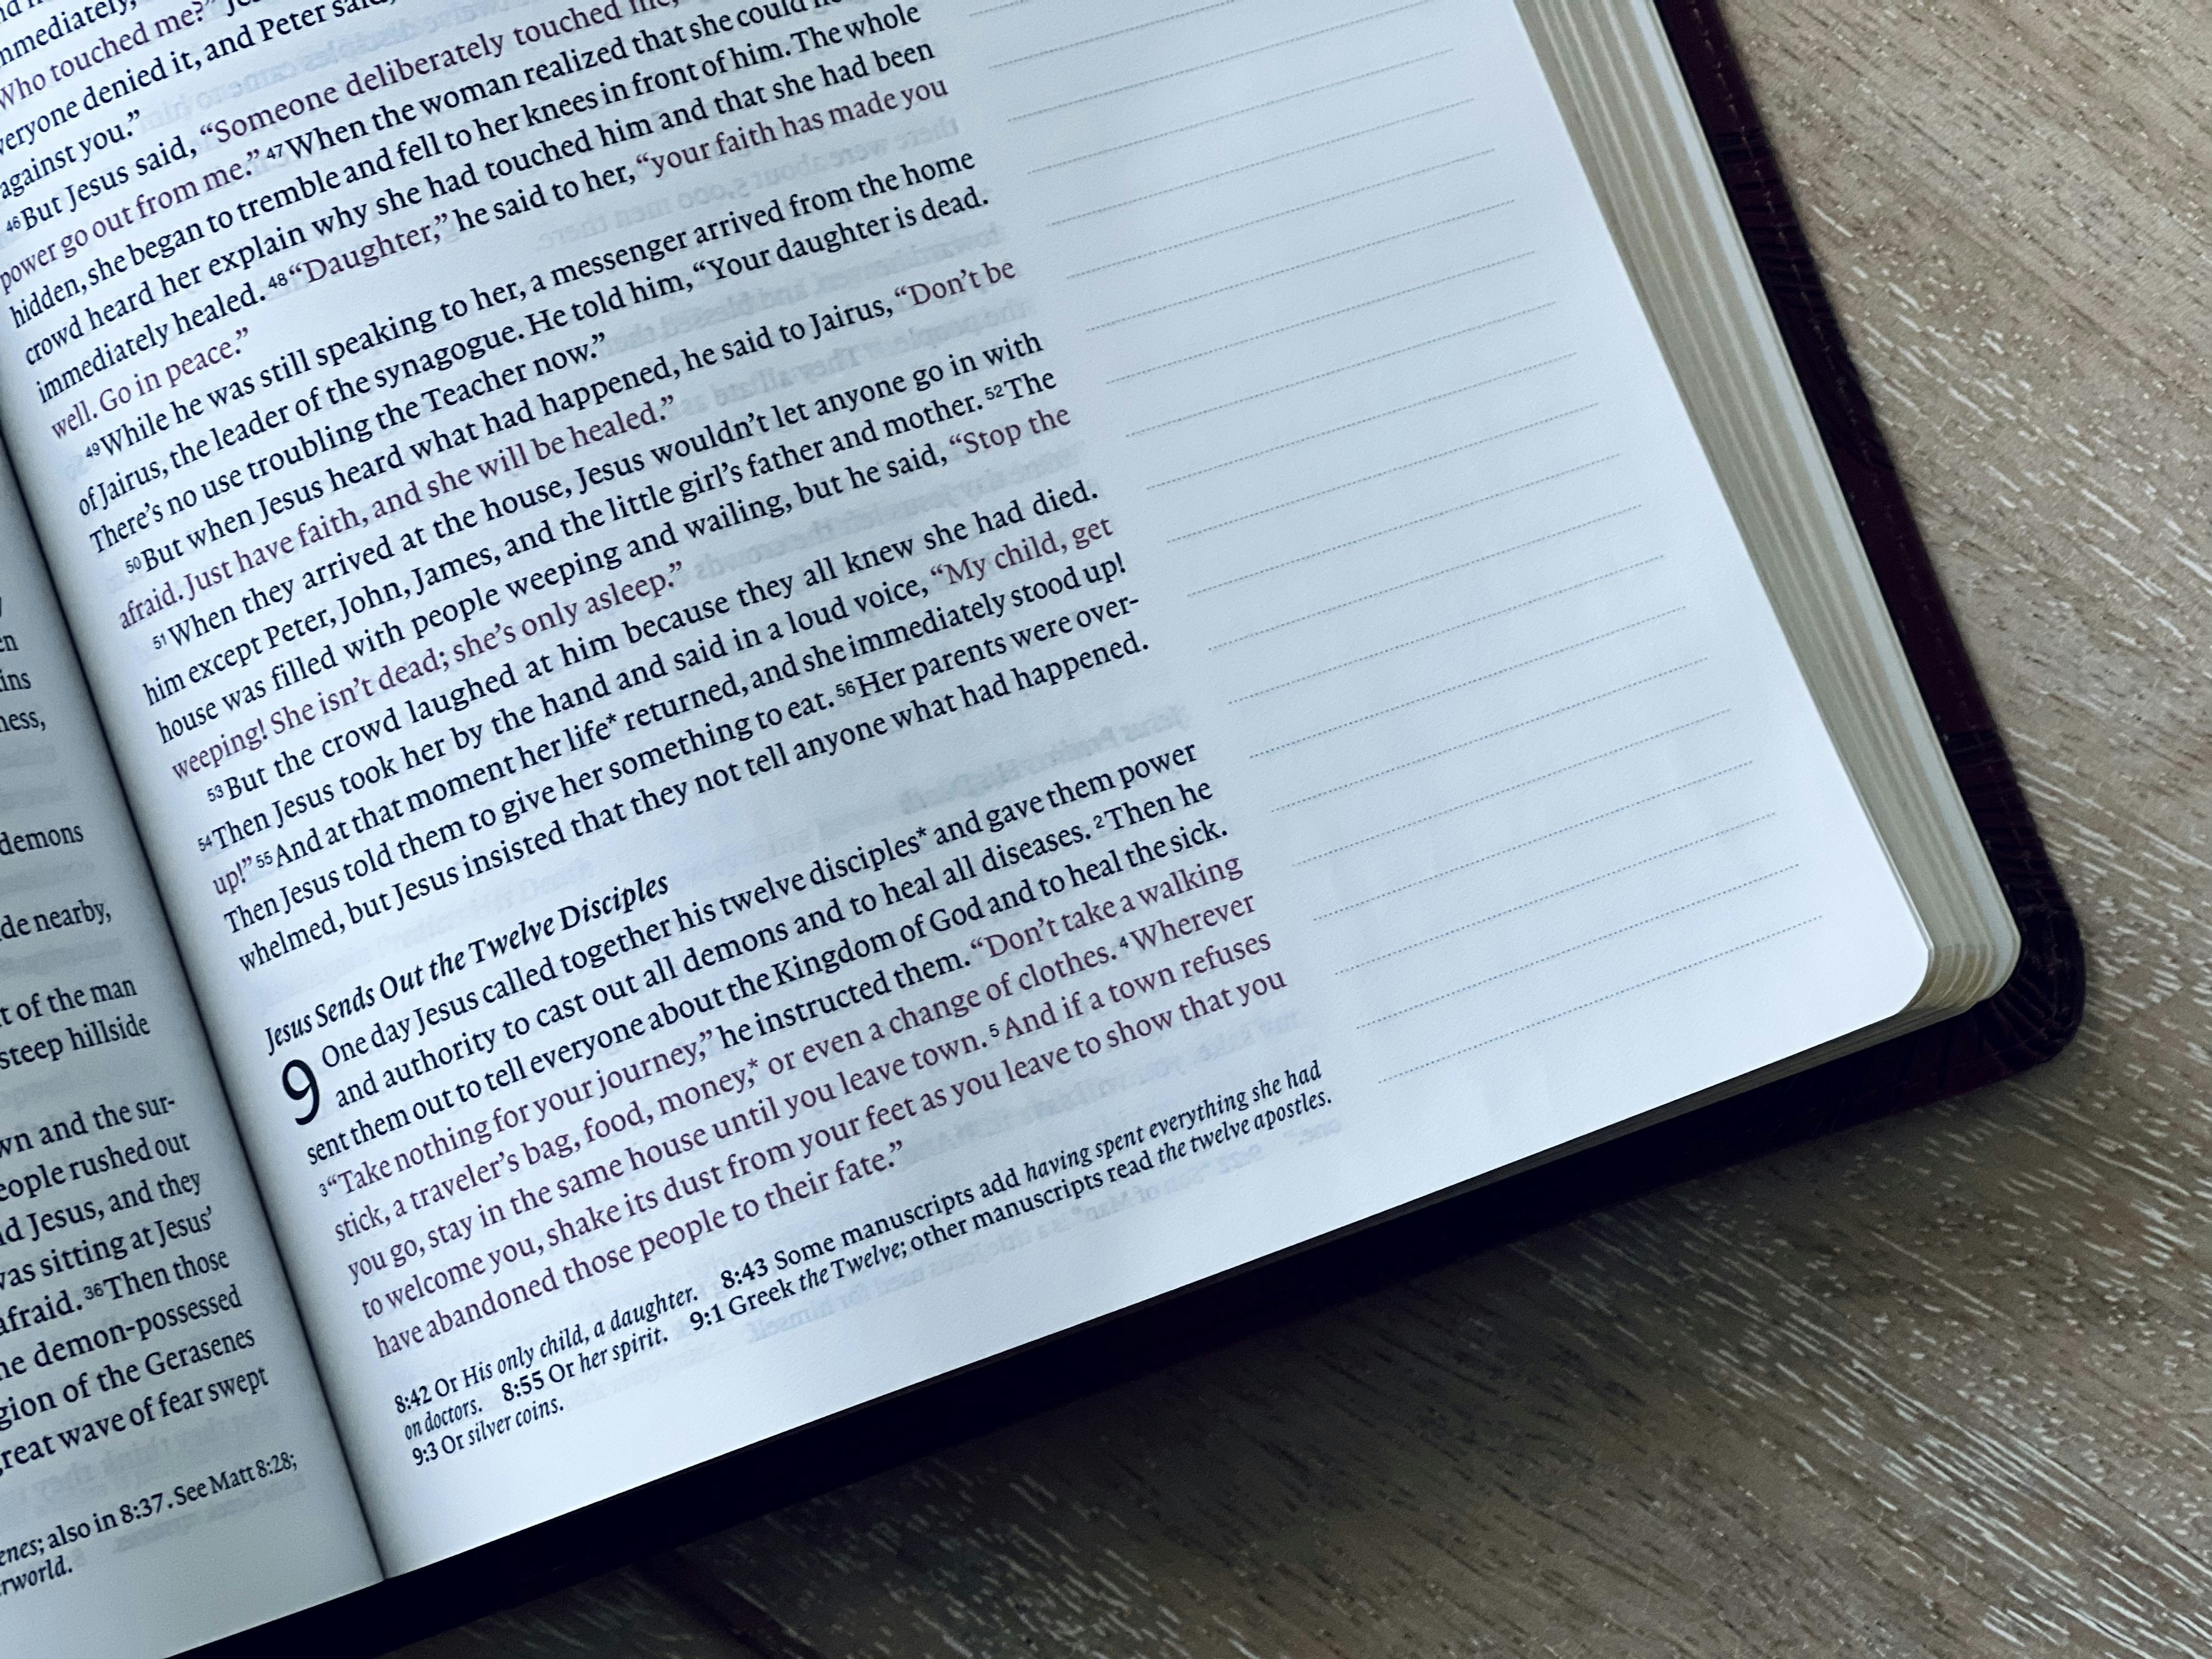 en
ins
ness,
demons
de nearby,
t of the man
steep hillside
wn and the sur-
eople rushed out
d Jesus, and they
was sitting at Jesus'
afraid. 36 Then those
he demon-possessed
gion of the Gerasenes
great wave of fear swept
enes; also in 8:37. See Matt 8:28;
rworld.
immediately,
Who touched me?”
veryone denied it, and Peter said,
against you.”
46 But Jesus said, “Someone deliberately touched me,
power go out from me.” 47 When the woman realized that she could
hidden, she began to tremble and fell to her knees in front of him. The whole
crowd heard her explain why she had touched him and that she had been
immediately healed. 48 “Daughter,” he said to her, “your faith has made you
well. Go in peace.”
49 While he was still speaking to her, a messenger arrived from the home
of Jairus, the leader of the synagogue. He told him, “Your daughter is dead.
There’s no use troubling the Teacher now.”
50 But when Jesus heard what had happened, he said to Jairus, “Don’t be
afraid. Just have faith, and she will be healed.”
51 When they arrived at the house, Jesus wouldn’t let anyone go in with
him except Peter, John, James, and the little girl’s father and mother. 52 The
house was filled with people weeping and wailing, but he said, “Stop the
weeping! She isn’t dead; she’s only asleep.”
53 But the crowd laughed at him because they all knew she had died.
54 Then Jesus took her by the hand and said in a loud voice, “My child, get
up!” 55 And at that moment her life* returned, and she immediately stood up!
Then Jesus told them to give her something to eat. 56 Her parents were over-
whelmed, but Jesus insisted that they not tell anyone what had happened.
Jesus Sends Out the Twelve Disciples
9 One day Jesus called together his twelve disciples* and gave them power
and authority to cast out all demons and to heal all diseases. 2 Then he
sent them out to tell everyone about the Kingdom of God and to heal the sick.
3 “Take nothing for your journey,” he instructed them. “Don’t take a walking
stick, a traveler’s bag, food, money,* or even a change of clothes. 4 Wherever
you go, stay in the same house until you leave town. 5 And if a town refuses
to welcome you, shake its dust from your feet as you leave to show that you
have abandoned those people to their fate.”
8:42 Or His only child, a daughter. 8:43 Some manuscripts add having spent everything she had
on doctors. 8:55 Or her spirit. 9:1 Greek the Twelve; other manuscripts read the twelve apostles.
9:3 Or silver coins.